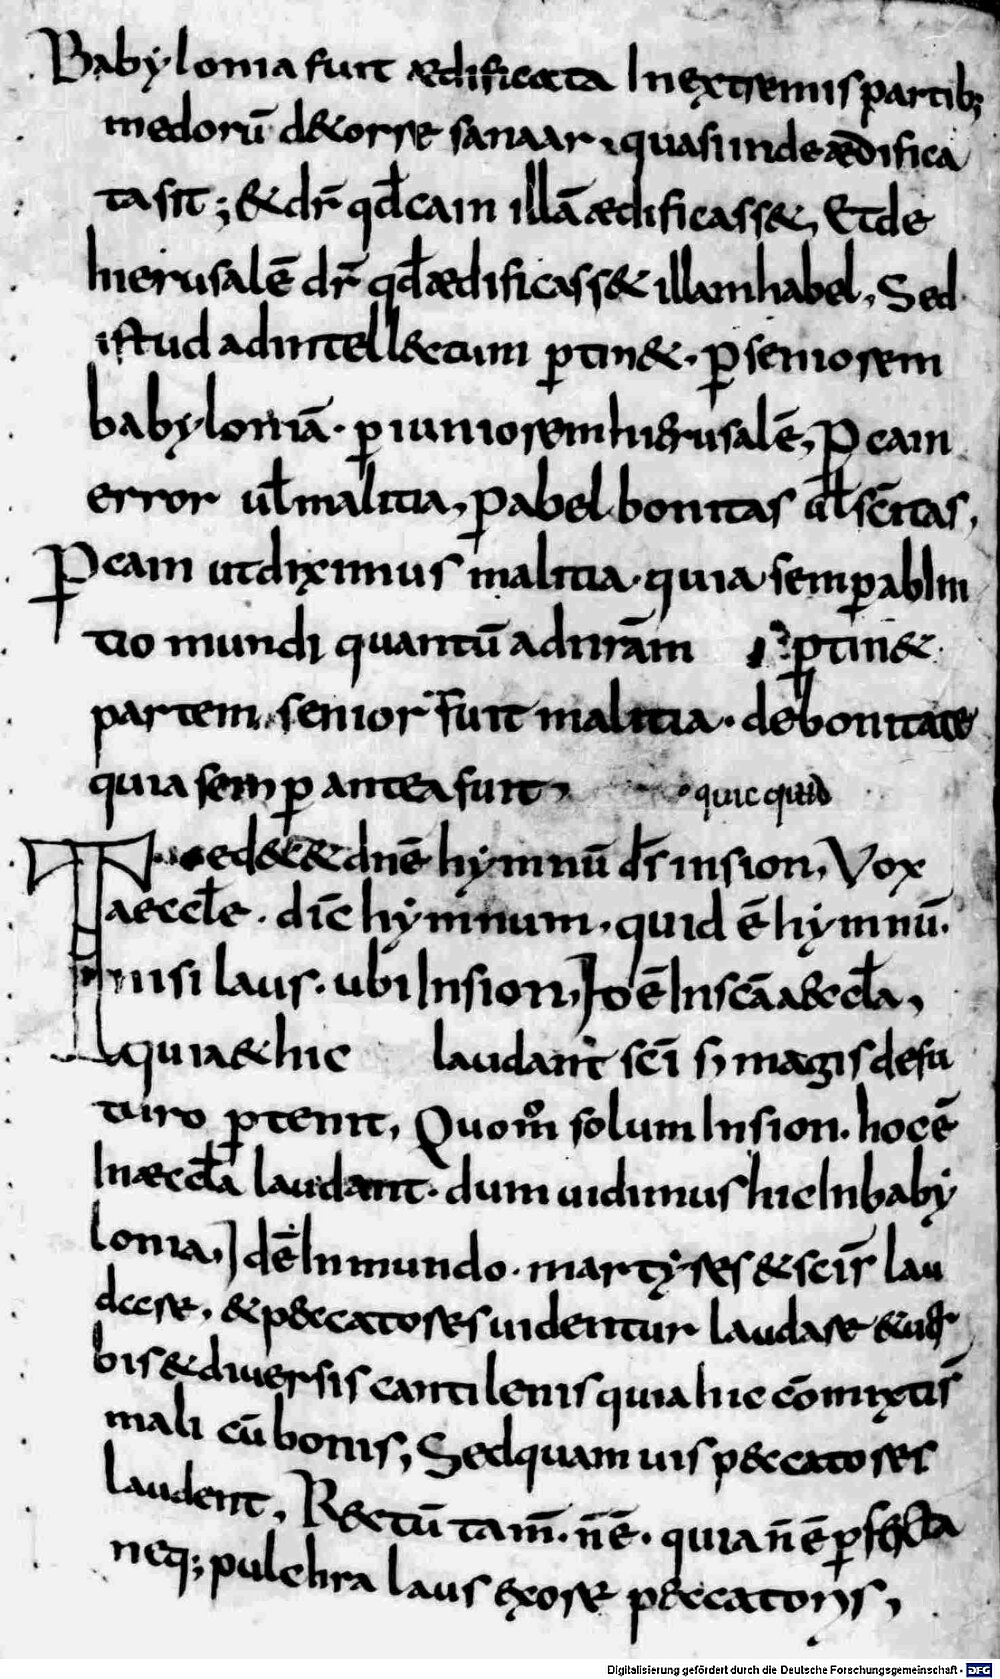 Baby·lonia fuit ædificata In extremis partib;
medorū d&orre sanaar· quasi inde ædifica
ta sit; & dr̄ qđ cain illā ædificass&, Et de
hierusalē dr̄ qđ ædificass& illam habel, Sed
istud ad intell&tum ꝑtin&· ꝑ seniorem
baby·loniā· ꝑ iuniorem hierusalē, P cain
error uł malitia, P abel bonitas uł sc̄itas,
P cain ut diximus malitia· quia semꝑ ab Ini
tio mundi quantū ad nr̄am ꝑtin&·
partem senior fuit malitia· de bonitate
quia semꝑ antea fuit,
Te dec& dn̄e hymnū ds̄ in sion, Vox
aeccłe· dīc hymnum· quid ē hymnū·
nisi laus· ubi In sion, Id ē In sc̄a aeccła,
quia & hic laudant sc̄i s; magis de fu
turo ꝑtenit, Quom̊ solum In sion· hoc ē
In æccła laudant· dum uidimus hic In baby
lonia, Id ē In mundo· marty·res & sc̄is lau
dare, & peccatores uidentur laudare & uer
bis & diuersis cantilenis quia hic cōmixtis
mali cū bonis, Sed quam uis peccatores
laudent, Rectū tam̄· n̄ ē· quia n̄ ē ꝑfecta
neq; pulchra laus ex ore peccatoris,
Digitalisierung gefördert durch die Deutsche Forschungsgemeinschaft - DFG